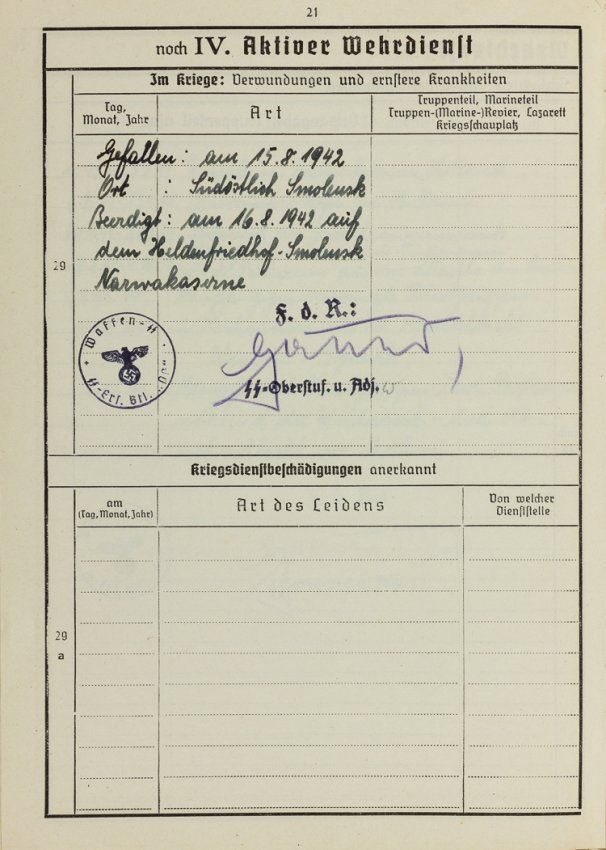 21
noch IV. Aktiver Wehrdienst
Im Kriege: Verwundungen und ernstere Krankheiten
Tag,
Monat, Jahr
Art
Truppenteil, Marineteil
Truppen-(Marine-)Revier, Lazarett
Kriegsschauplatz
Gefallen: am 15.8.1942
Ort : Südöstlich Smolensk
Beerdigt: am 16.8.1942 auf
dem Heldenfriedhof-Smolensk
29
Narwakaserne
F. d. R.:
Waffen-SS
SS-Ers. Btl.
SS-Oberstuf. u. Adj.
Kriegsdienstbeschädigungen anerkannt
am
(Tag, Monat, Jahr)
Art des Leidens
Von welcher
Dienststelle
29
a